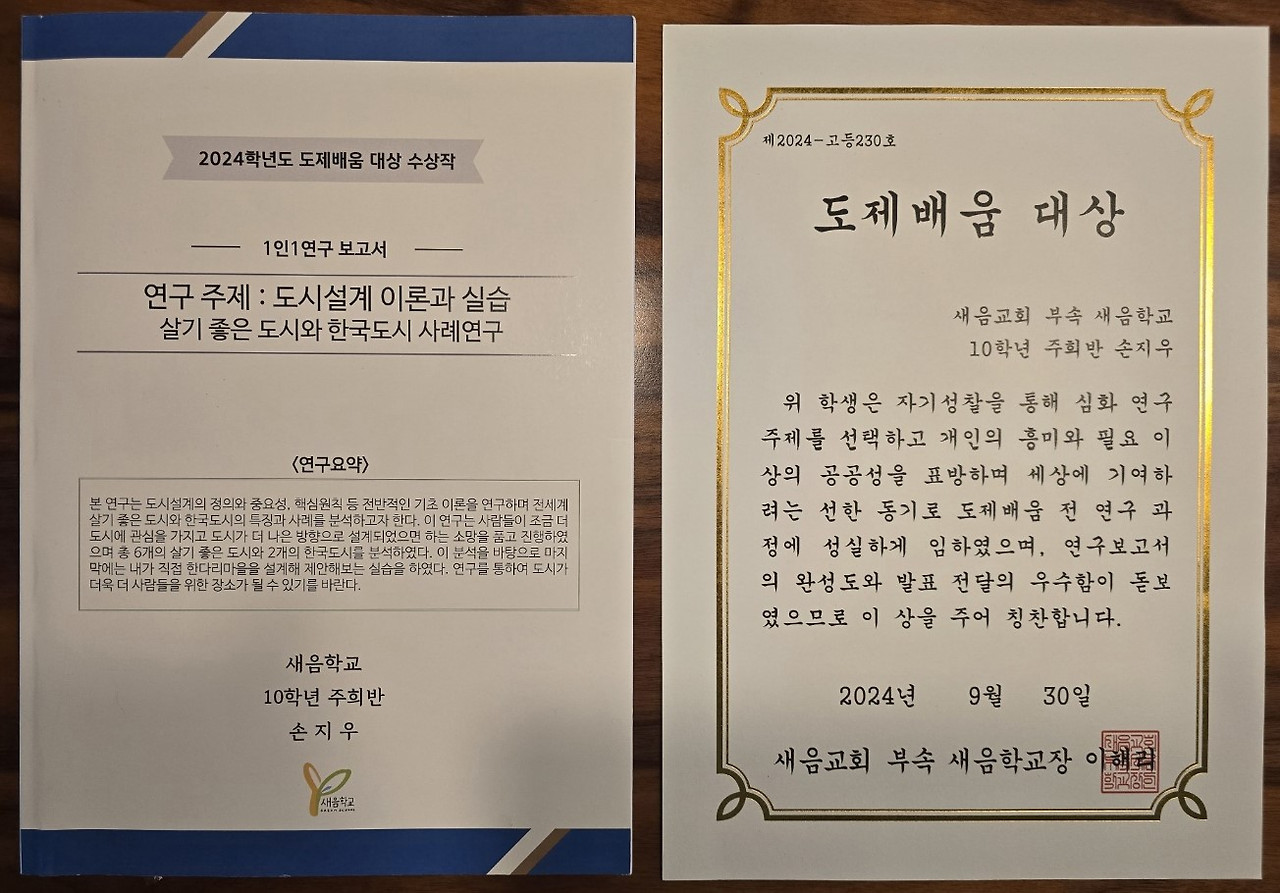 2024학년도 도제배움 대상 수상작
1인1연구 보고서
연구 주제 : 도시설계 이론과 실습
살기 좋은 도시와 한국도시 사례연구
〈연구요약〉
본 연구는 도시설계의 정의와 중요성, 핵심원칙 등 전반적인 기초 이론을 연구하며 전세계
살기 좋은 도시와 한국도시의 특징과 사례를 분석하고자 한다. 이 연구는 사람들이 조금 더
도시에 관심을 가지고 도시가 더 나은 방향으로 설계되었으면 하는 소망을 품고 진행하였
으며 총 6개의 살기 좋은 도시와 2개의 한국도시를 분석하였다. 이 분석을 바탕으로 마지
막에는 내가 직접 한다리마을을 설계해 제안해보는 실습을 하였다. 연구를 통하여 도시가
더욱 더 사람들을 위한 장소가 될 수 있기를 바란다.
새음학교
10학년 주희반
손 지 우
새음학교
제2024-고등230호
도제배움 대상
새음교회 부속 새음학교
10학년 주희반 손지우
위 학생은 자기성찰을 통해 심화 연구
주제를 선택하고 개인의 흥미와 필요 이
상의 공공성을 표방하며 세상에 기여하
려는 선한 동기로 도제배움 전 연구 과
정에 성실하게 임하였으며, 연구보고서
의 완성도와 발표 전달의 우수함이 돋보
였으므로 이 상을 주어 칭찬합니다.
2024년 9월 30일
새음교회 부속 새음학교장 이해리